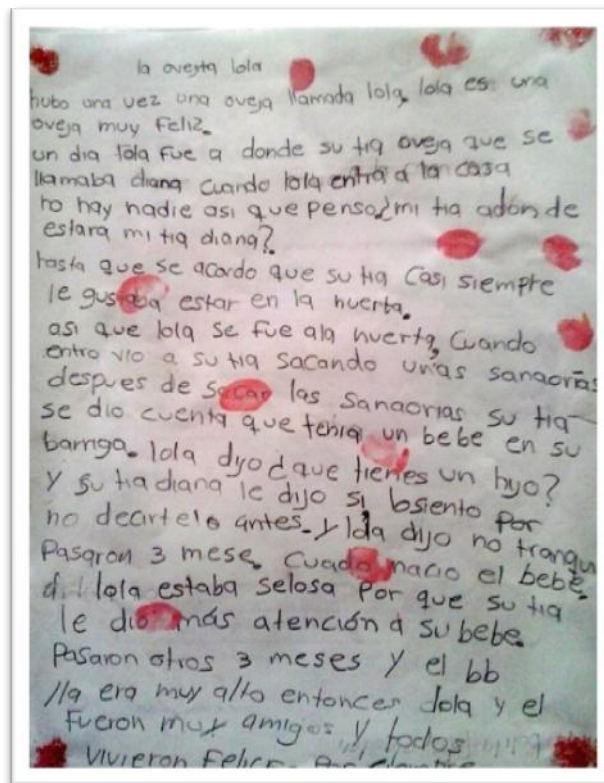 la oveyta lola
hubo una vez una oveja llamada lola, lola es una
oveja muy Feliz.
un dia lola fue a donde su tia oveja que se
llamaba diana cuando lola entra a la casa
no hay nadie asi que penso ¿mi tia adonde
estara mi tia diana?
hasta que se acordo que su tia casi siempre
le gustaba estar en la huerta.
asi que lola se fue ala huerta, Cuando
entro vio a su tia sacando unas sanaorias
despues de sacar las sanaorias su tia
se dio cuenta que tenia un bebe en su
barriga. lola dijo ¿que tienes un hijo?
Y su tia diana le dijo si losiento por
no decirtelo antes. y lola dijo no tranqui
Pasaron 3 mese. cuado nacio el bebe.
lola estaba selosa Por que su tia
le dio más atención a su bebe.
Pasaron otros 3 meses y el bb
lla era muy alto entonces lola y el
fueron muy amigos y todos
Vivieron Felices